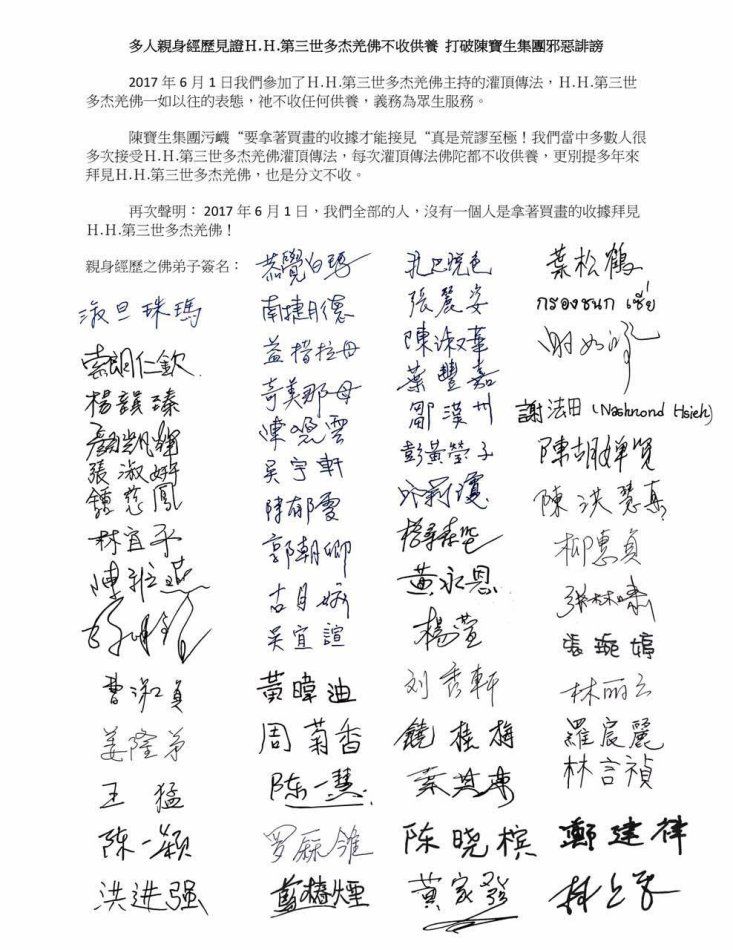 多人親身經歷見證H.H.第三世多杰羌佛不收供養 打破陳寶生集團邪惡誹謗
2017 年 6 月 1 日我們參加了H.H.第三世多杰羌佛主持的灌頂傳法，H.H.第三世
多杰羌佛一如以往的表態，祂不收任何供養，義務為眾生服務。
陳寶生集團污衊“要拿著買畫的收據才能接見“真是荒謬至極！我們當中多數人很
多次接受H.H.第三世多杰羌佛灌頂傳法，每次灌頂傳法佛陀都不收供養，更別提多年來
拜見H.H.第三世多杰羌佛，也是分文不收。
再次聲明： 2017 年 6 月 1 日，我們全部的人，沒有一個人是拿著買畫的收據拜見
H.H.第三世多杰羌佛！
親身經歷之佛弟子簽名：
淑旦珠瑪
索朗仁欽
張淑妤
鍾慈鳳
林宜平
曹淑貞
姜隆弟
王猛
陳一穎
洪进强
南捷月德
益楷拉母
奇美那母
陳曉雲
吳宇軒
陳郁雯
郭朝卿
吳宜諠
黃暐迪
周菊香
陈一慧
藍椿煙
張麗姿
陳淑華
葉豐嘉
鄒漢州
彭黃瑩子
黃永恩
楊萱
刘秀軒
饒桂梅
陈晓槟
黃家發
葉松鶴
กรองชนก เซี่ย
謝法田 (Nashnond Hsieh)
陳洪慧真
柳惠貞
張琬婷
林丽云
羅宸麗
林言禎
鄭建律